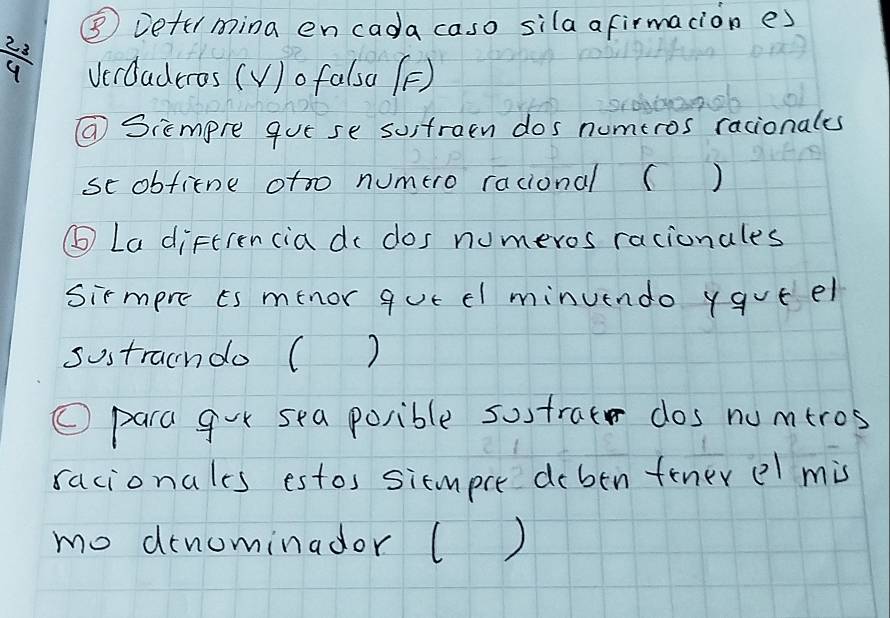 ③ Determina en cada caso si la afirmación es
23/4
Verdaderas (V) o falsa (F)
ⓐ Siempre que se sustraen dos numeros racionales
se obtiene otro numero racional ( )
ⓑ La diferencia de dos numeros racionales
Siempre es menor que el minuendo y que el
sustraendo ( )
ⓒ para que sea posible sustraer dos numeros
racionales estos siempre deben tener el mis
mo denominador ( )